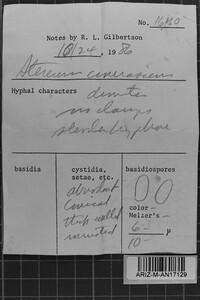 No. 16130
Notes by R. L. Gilbertson
10/24, 1986
Stereum cinerascens
Hyphal characters dimitic
no clamps
slender hyphae
basidia
cystidia, setae, etc.
abundant
conical
thick walled
incrusted
basidiospores
color —
Melzer's —
6- μ
10-
ARIZ-M-AN17129